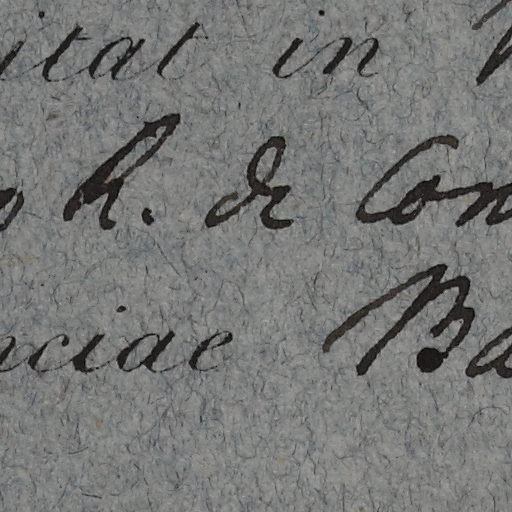 itat in
R. de Con
nciae Ba